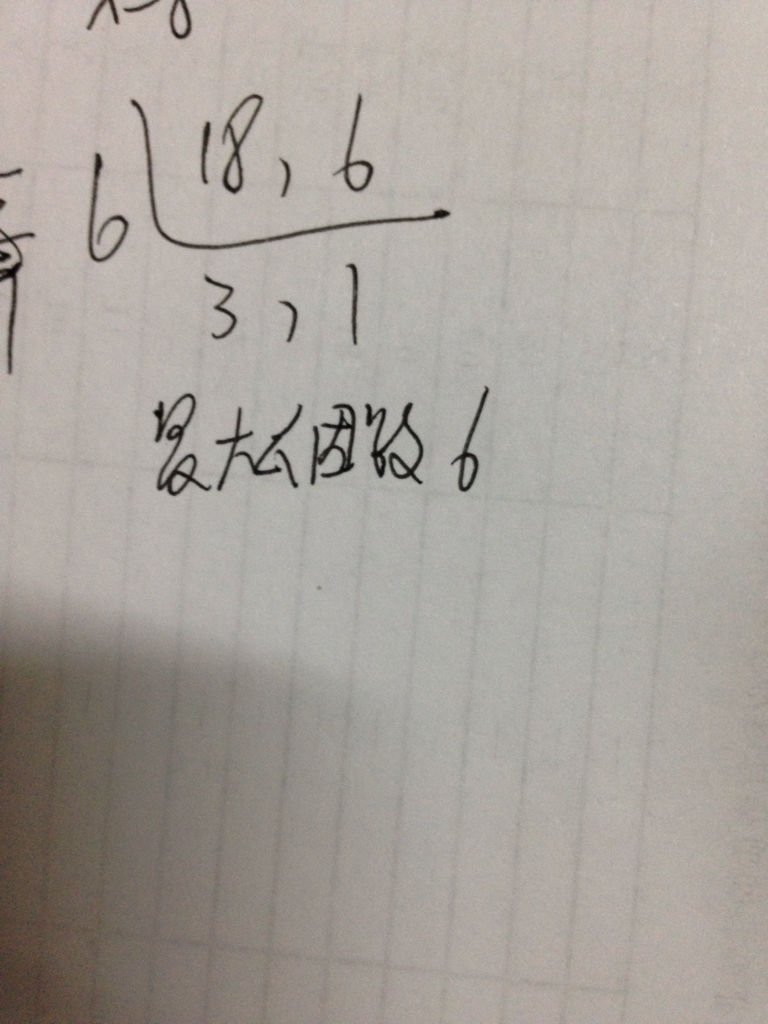 6 18, 6
3, 1
最大公因数 6